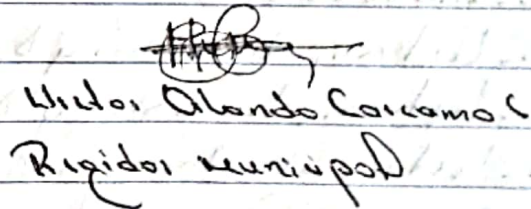 Victor Olando Carcamo C
Regidor municipal